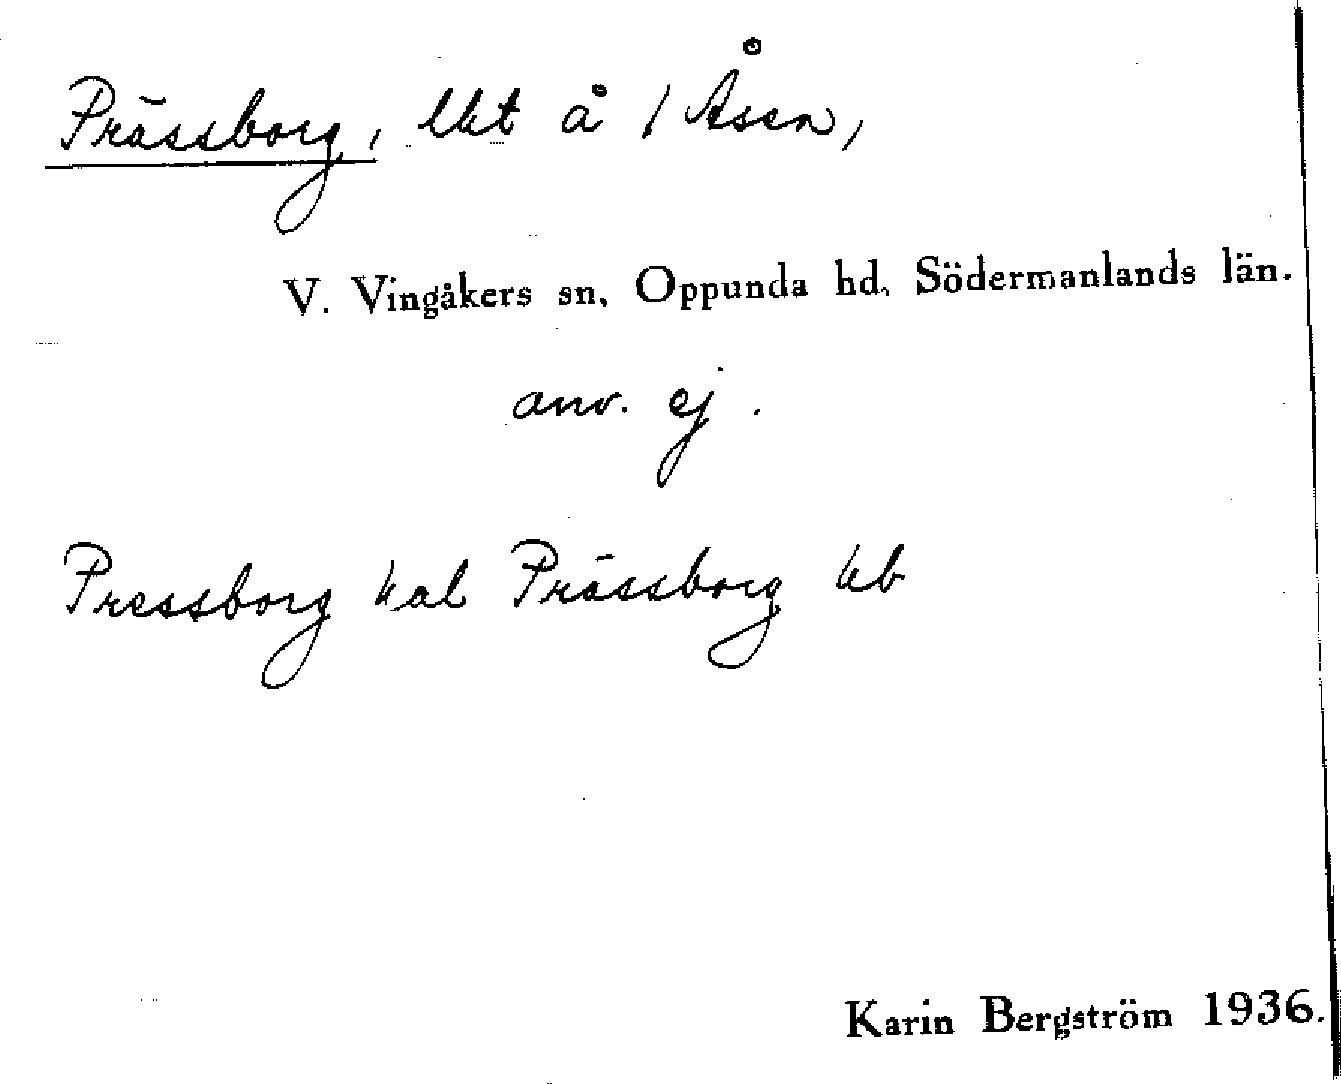 Prässborg, lht å 1 Åsen,
V. Vingåkers sn, Oppunda hd, Södermanlands län.
anv. ej.
Pressborg hal Prässborg kb
Karin Bergström 1936.